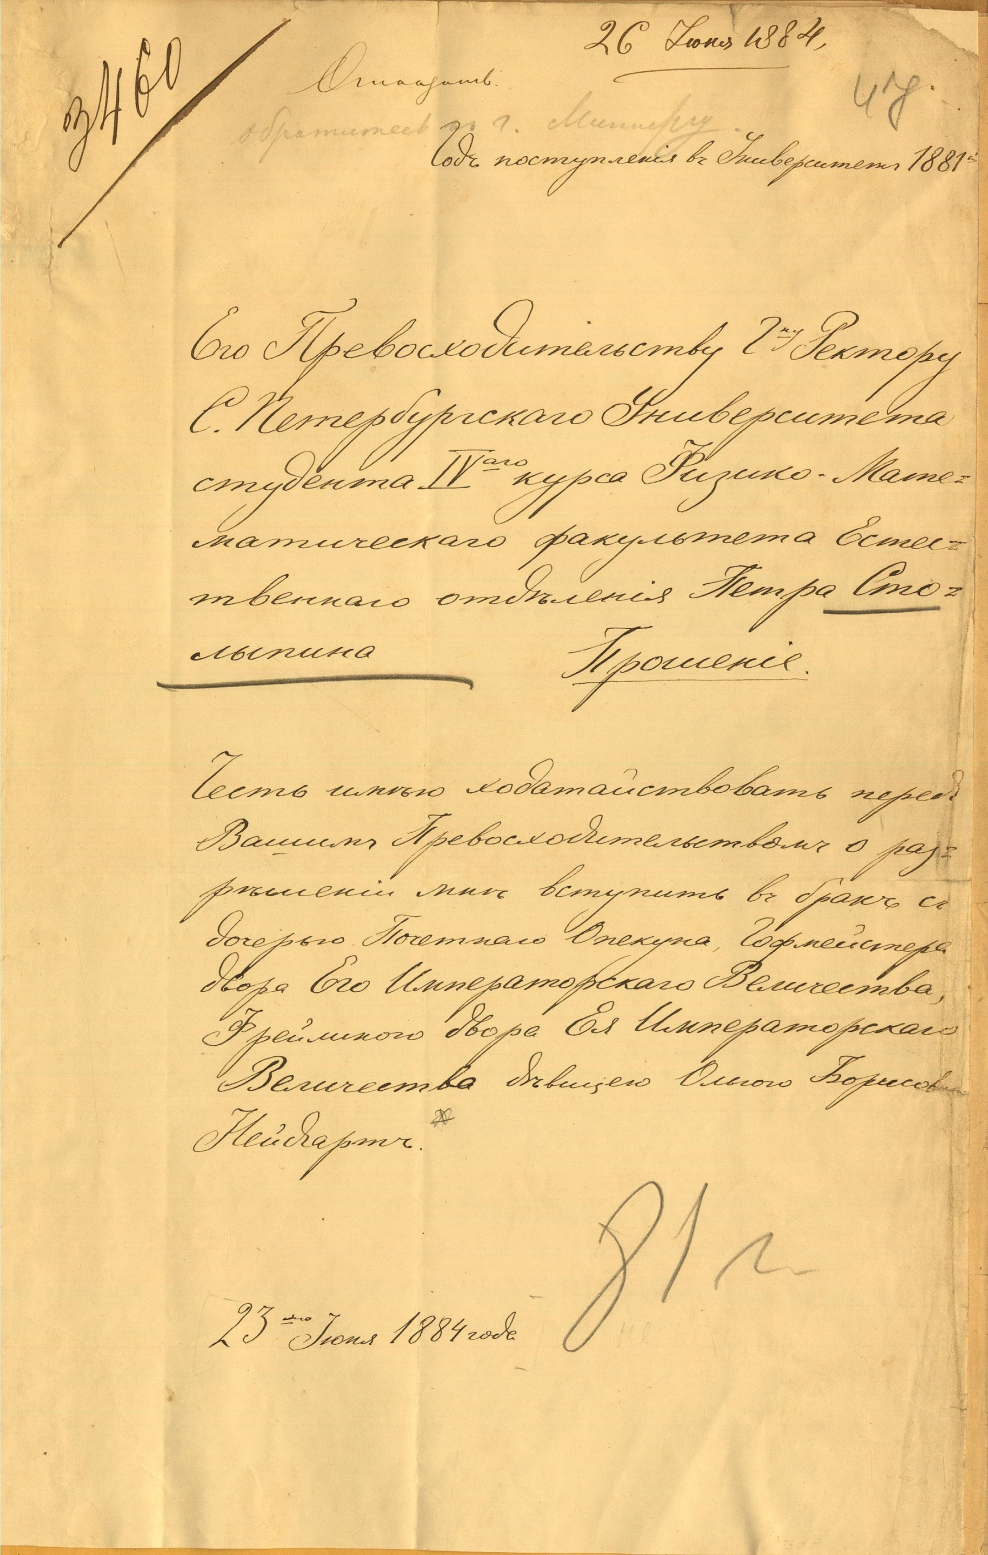 3460
26 Июня 1884,
47.
Отказать.
обратиться к г. Министру.
Годъ поступленія въ Университетъ 1881й
Его Превосходительству Гну Ректору
С. Петербургскаго Университета
студента IVаго курса Физико-Мате=
матическаго факультета Естес=
твеннаго отдѣленія Петра Сто=
лыпина
Прошеніе.
Честь имѣю ходатайствовать передъ
Вашимъ Превосходительствомъ о раз=
рѣшеніи мнѣ вступить въ бракъ съ
дочерью Почетнаго Опекуна, Гофмейстера
двора Его Императорскаго Величества,
Фрейлиною двора Ея Императорскаго
Величества дѣвицею Ольгою Борисовн
Нейдгартъ.
23го Июня 1884 года